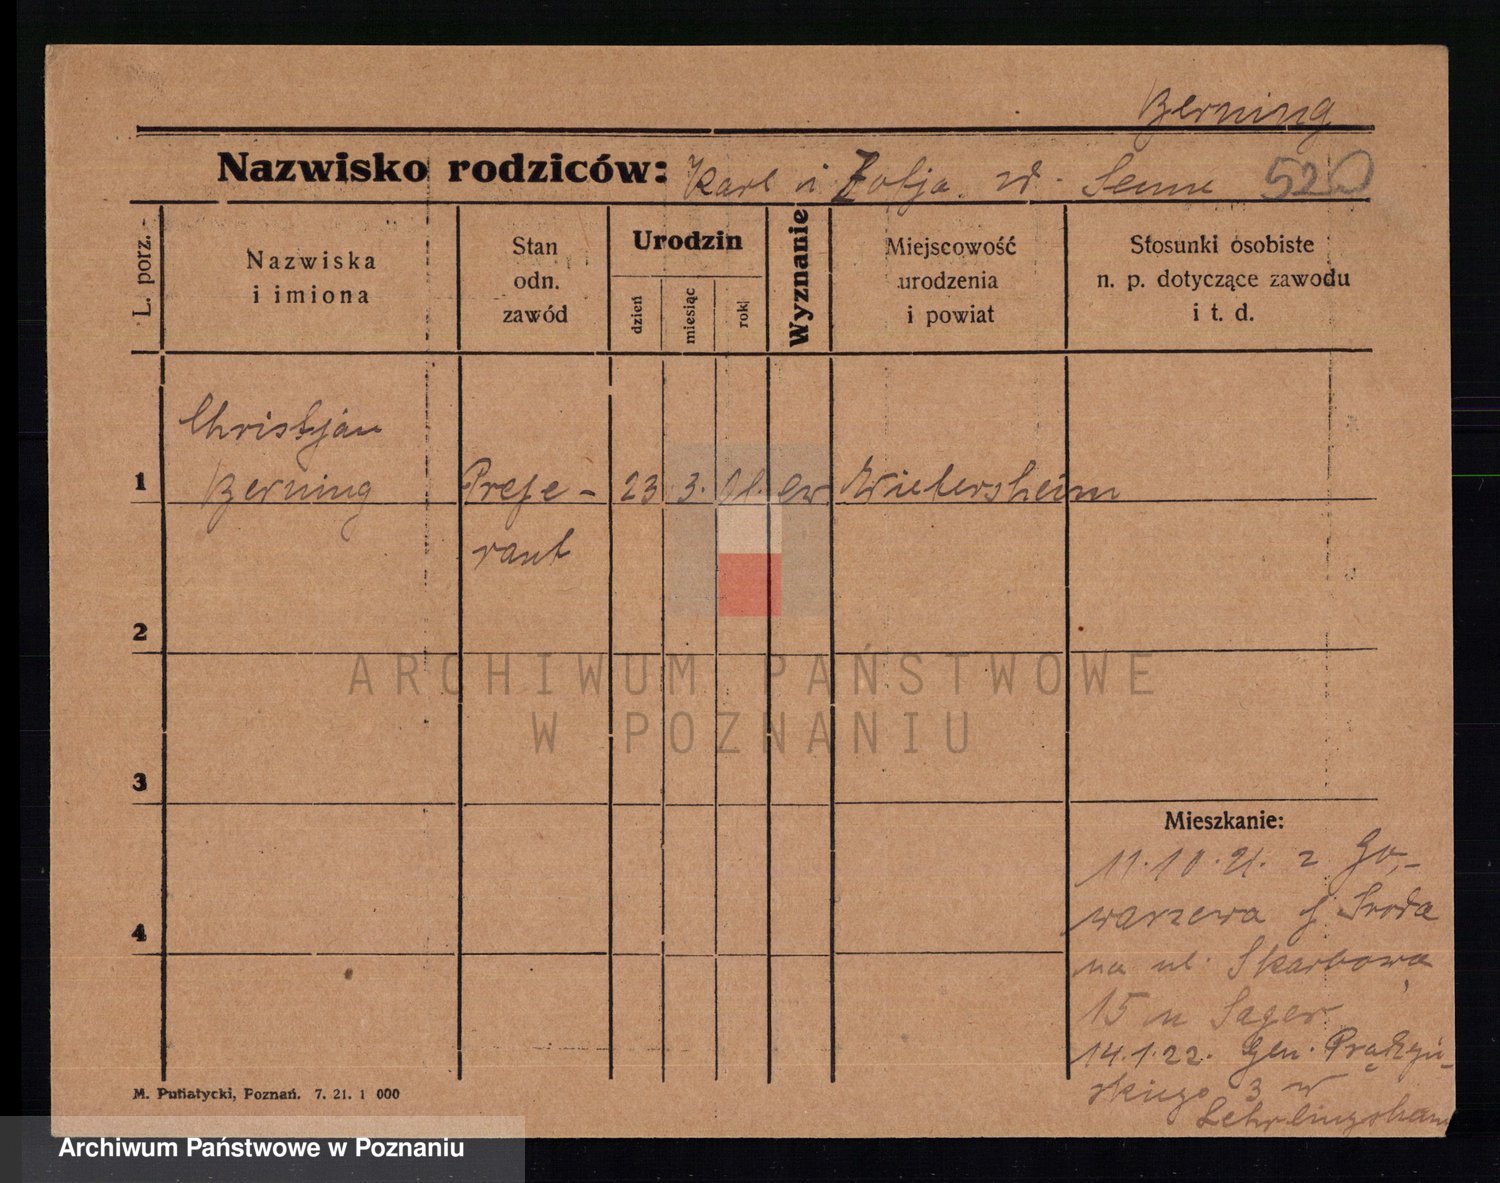 Berning
Nazwisko rodziców: Karl i Zofja zd. Senne 520
L. porz.
Nazwiska
i imiona
Stan
odn.
zawód
Urodzin
dzień
miesiąc
rok
Wyznanie
Miejscowość
urodzenia
i powiat
Stosunki osobiste
n. p. dotyczące zawodu
i t. d.
Christjan
1 Berning Prefe- 23 3. 01. ew. Wietersheim
rant
2
ARCHIWUM PAŃSTWOWE
W POZNANIU
3
Mieszkanie:
11.10.21. z Go,-
4 warzewa p. Środa
na ul. Skarbowa
15 u Sager
14.1.22. Gen. Prądzyń-
skiego 3 w
M. Putiatycki, Poznań. 7. 21. 1 000
Lehrlingsheim
Archiwum Państwowe w Poznaniu